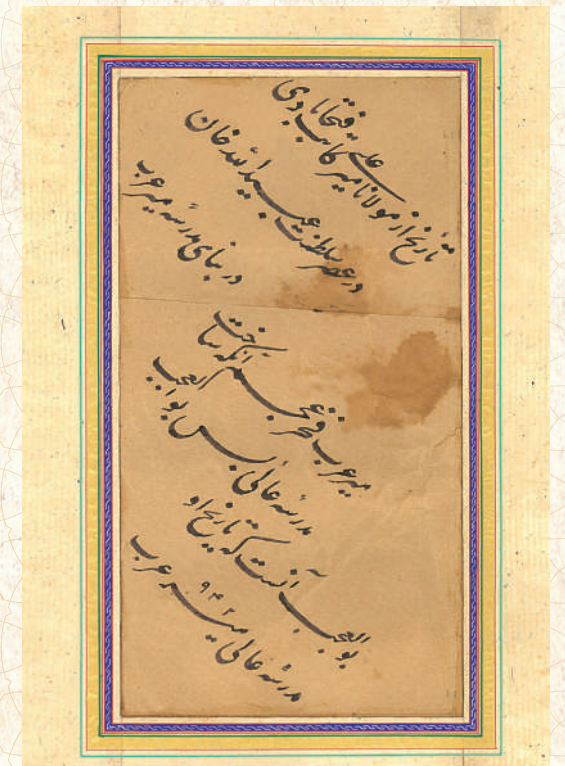 تاریخ از مولانا میر علی کاتب فتحابادی
در عصر سلطنت عبیدالله خان
در بنای مدرسه میر عرب
میر عرب فخر عجم آنکه ساخت
مدرسه عالی بس بوالعجب
بوالعجب آنست که تاریخ او
مدرسه عالی میر عرب
۹۴۲